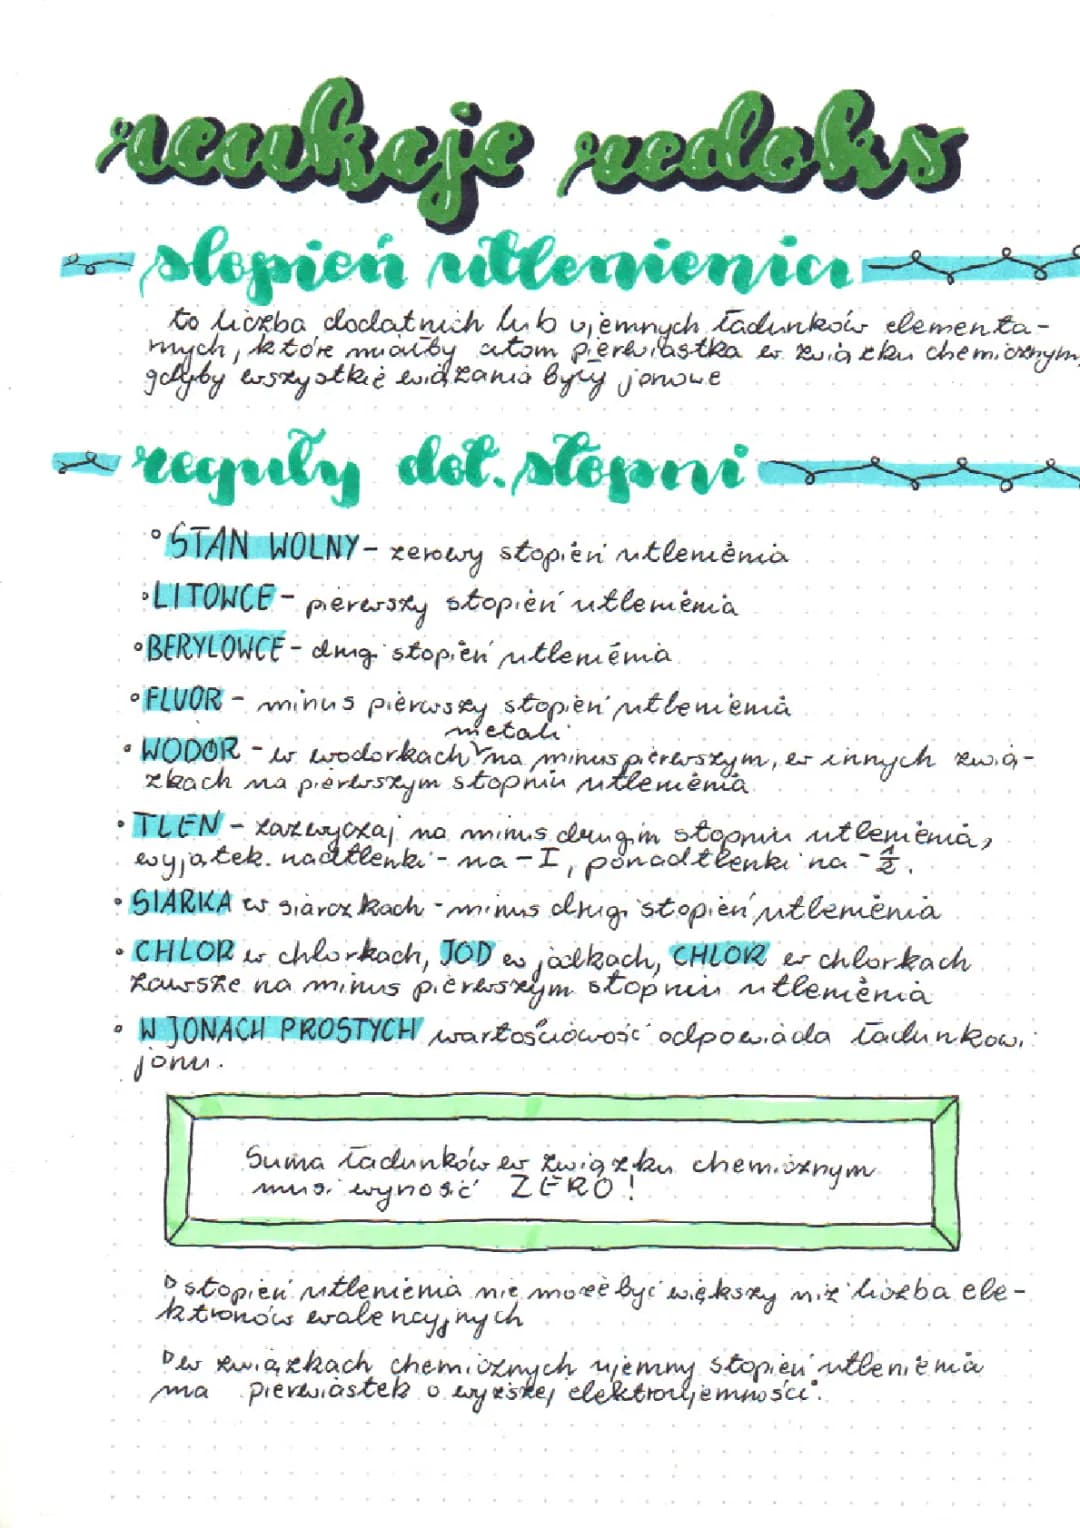 reakcje redoks
stopień utlenienia
to liczba dodatnich lub ujemnych ładunków elementa-
rnych, które miałby atom pierwiastka w związku chemicznym,
gdyby wszystkie wiązania były jonowe
reguły dot. stopni
°STAN WOLNY - zerowy stopień utlenienia
°LITOWCE - pierwszy stopień utlenienia
°BERYLOWCE - drugi stopień utlenienia
°FLUOR - minus pierwszy stopień utlenienia
metali
°WODÓR - w wodorkach ˅ na minus pierwszym, w innych zwią-
zkach na pierwszym stopniu utlenienia
°TLEN - zazwyczaj na minus drugim stopniu utlenienia,
wyjątek. nadtlenki - na -I, ponadtlenki na -½.
°SIARKA w siarczkach - minus drugi stopień utlenienia
°CHLOR w chlorkach, JOD w jodkach, CHLOR w chlorkach
zawsze na minus pierwszym stopniu utlenienia
°W JONACH PROSTYCH wartościowość odpowiada ładunkowi
jonu.
Suma ładunków w związku chemicznym
musi wynosić ZERO!
▷stopień utlenienia nie może być większy niż liczba ele-
ktronów walencyjnych
▷w związkach chemicznych ujemny stopień utlenienia
ma pierwiastek o wyższej elektroujemności.